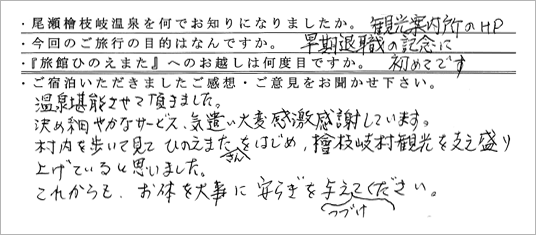 ・尾瀬檜枝岐温泉を何でお知りになりましたか。 観光案内所のHP
・今回のご旅行の目的はなんですか。 早期退職の記念に
・『旅館ひのえまた』へのお越しは何度目ですか。 初めてです
・ご宿泊いただきましたご感想・ご意見をお聞かせ下さい。
温泉堪能させて頂きました。
決め細やかなサービス、気遣い大変感激感謝しています。
村内を歩いて見て ひのえまたさんをはじめ、檜枝岐村観光を支え盛り
上げていると思いました。
これからも、お体を大事に 安らぎを与えてください。
つづけ